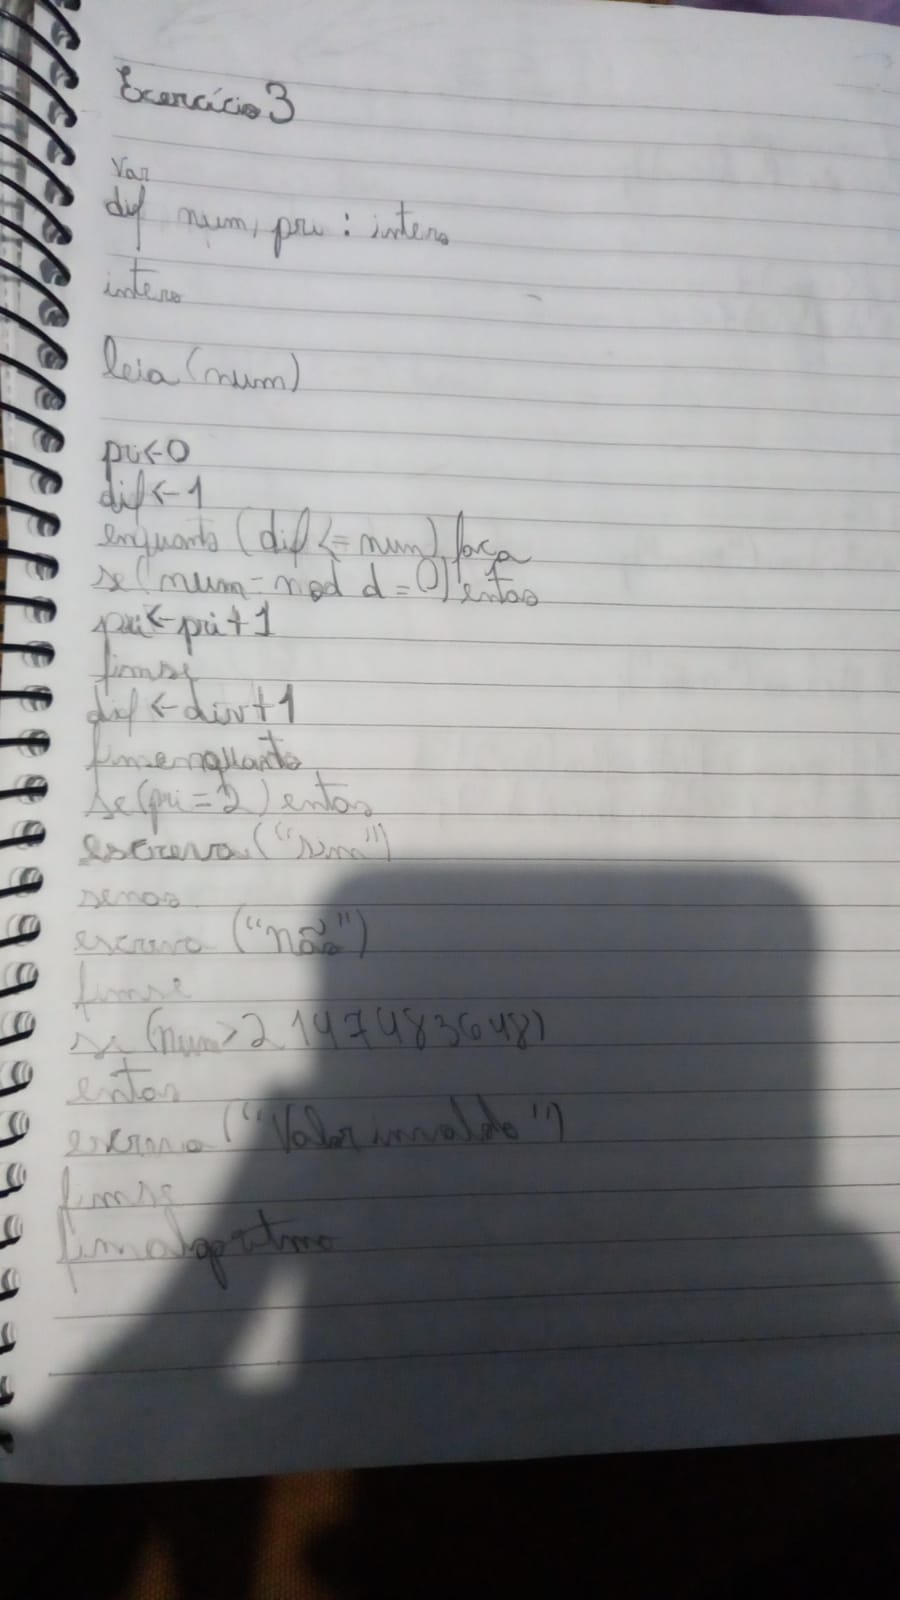 Exercício 3
Var
dif num, pri : intero
intero
leia (num)
pri <- 0
dif <- 1
enquanto (dif <= num) faça
se (num = mod d = 0) entao
pri <- pri + 1
fimse
dif <- div + 1
fimenquanto
se (pri = 2) entao
escreva ("sim")
senao
escreva ("não")
fimse
se (num > 2147483648)
entao
escreva ("Valor invaldo")
fimse
fimalgoritmo